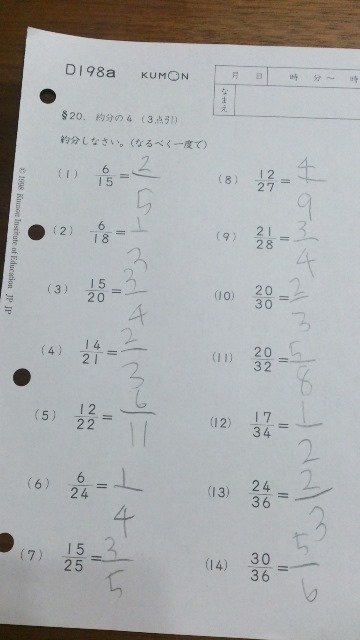 D198a KUMON
月 日 時 分〜 時
なまえ
§20. 約分の4 (3点引)
約分しなさい。(なるべく一度で)
(1) 6/15 = 2/5
(2) 6/18 = 1/3
(3) 15/20 = 3/4
(4) 14/21 = 2/3
(5) 12/22 = 6/11
(6) 6/24 = 1/4
(7) 15/25 = 3/5
(8) 12/27 = 4/9
(9) 21/28 = 3/4
(10) 20/30 = 2/3
(11) 20/32 = 5/8
(12) 17/34 = 1/2
(13) 24/36 = 2/3
(14) 30/36 = 5/6
© 1998 Kumon Institute of Education JP JP